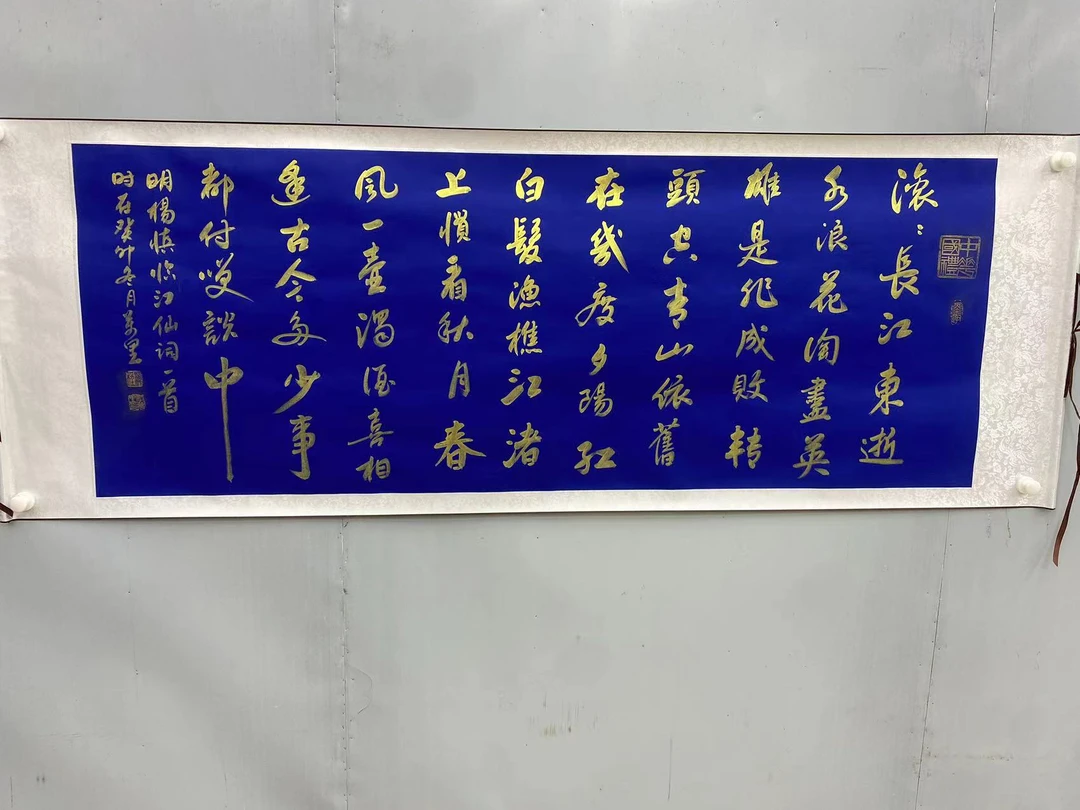 滚:長江東逝
水浪花淘盡英
雄是非成敗转
頭空青山依舊
在幾度夕陽红
白髮漁樵江渚
上慣看秋月春
風一壺濁酒喜相
逢古今多少事
都付笑談中
明楊慎临江仙词一首
时在癸卯冬月萬里
中華
國禮